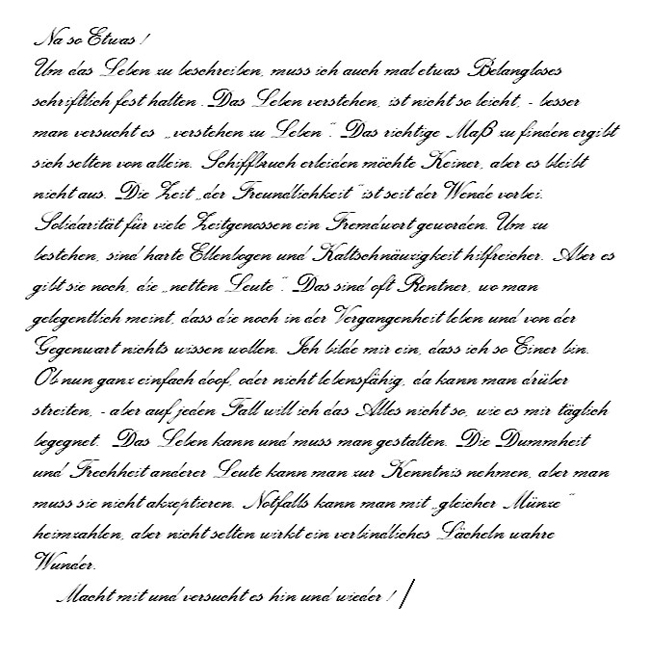 Na so Etwas !
Um das Leben zu beschreiben, muss ich auch mal etwas Belangloses
schriftlich fest halten . Das Leben verstehen, ist nicht so leicht, - besser
man versucht es „verstehen zu Leben“. Das richtige Maß zu finden ergibt
sich selten von allein. Schiffbruch erleiden möchte Keiner, aber es bleibt
nicht aus. Die Zeit „der Freundlichkeit“ ist seit der Wende vorbei.
Solidarität für viele Zeitgenossen ein Fremdwort geworden. Um zu
bestehen, sind harte Ellenbogen und Kaltschnäuzigkeit hilfreicher. Aber es
gibt sie noch, die „netten Leute“. Das sind oft Rentner, wo man
gelegentlich meint, dass die noch in der Vergangenheit leben und von der
Gegenwart nichts wissen wollen. Ich bilde mir ein, dass ich so Einer bin.
Ob nun ganz einfach doof, oder nicht lebensfähig, da kann man drüber
streiten, - aber auf jeden Fall will ich das Alles nicht so, wie es mir täglich
begegnet. Das Leben kann und muss man gestalten. Die Dummheit
und Frechheit anderer Leute kann man zur Kenntnis nehmen, aber man
muss sie nicht akzeptieren. Notfalls kann man mit „gleicher Münze“
heimzahlen, aber nicht selten wirkt ein verbindliches Lächeln wahre
Wunder.
Macht mit und versucht es hin und wieder !